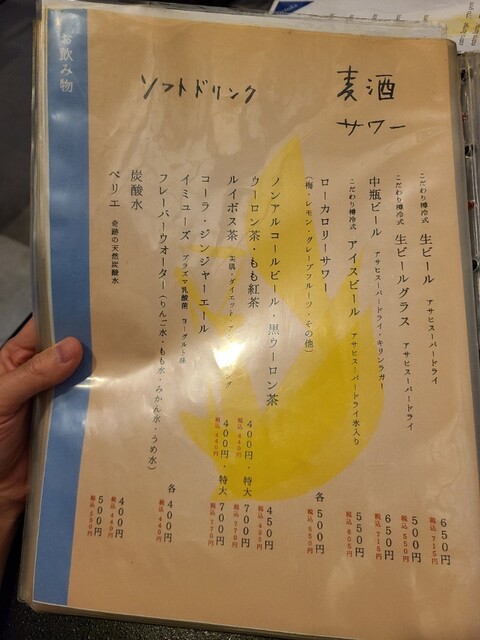 お飲み物
麦酒
サワー
こだわり樽冷式 生ビール アサヒスーパードライ 650円
税込715円
こだわり樽冷式 生ビールグラス アサヒスーパードライ 500円
税込550円
中瓶ビール アサヒスーパードライ・キリンラガー 650円
税込715円
こだわり樽冷式 アイスビール アサヒスーパードライ氷入り 550円
税込605円
ローカロリーサワー
(梅・レモン・グレープフルーツ・その他) 各500円
税込550円
ソフトドリンク
ノンアルコールビール・黒ウーロン茶 450円
税込495円
ウーロン茶・もも紅茶 400円・特大700円
税込440円 税込770円
ルイボス茶 美肌・ダイエット 400円・特大700円
税込440円 税込770円
コーラ・ジンジャーエール
イミューズ プラズマ乳酸菌 ヨーグルト味
フレーバーウオーター(りんご水・もも水・みかん水・うめ水) 各400円
税込440円
炭酸水 400円
税込440円
ペリエ 奇跡の天然炭酸水 500円
税込550円